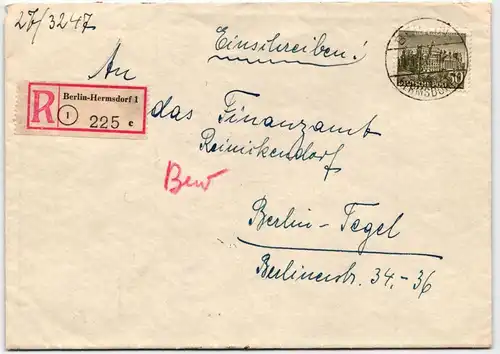 27/3247
Einschreiben!
An
R
Berlin-Hermsdorf 1
1
225 c
das Finanzamt
Reinickendorf
Bew
Berlin-Tegel
Berlinerstr. 34.-36